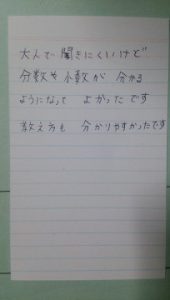 大人で聞きにくいけど
分数や小数が 分かる
ようになって よかったです
教え方も 分かりやすかったです